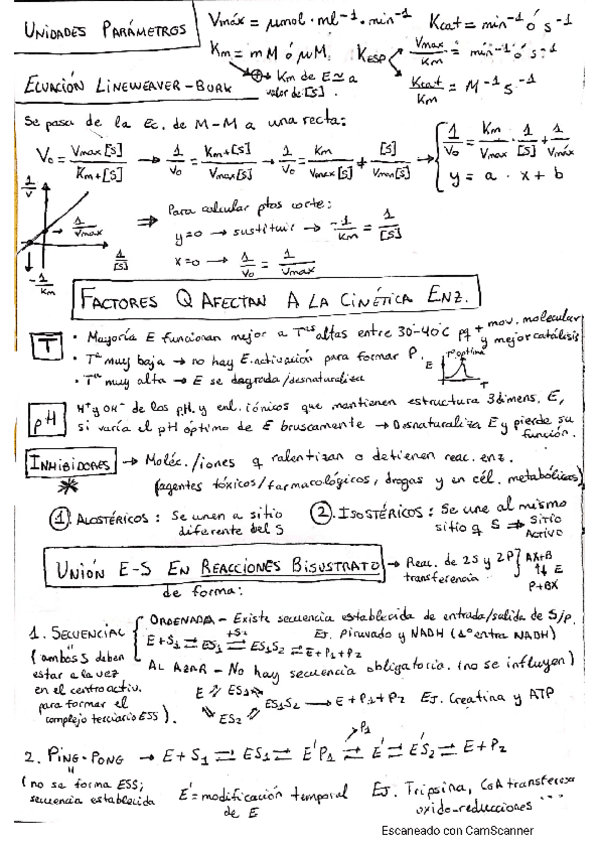 UNIDADES PARÁMETROS
Vmáx = µmol · ml⁻¹ · min⁻¹ Kcat = min⁻¹ ó s⁻¹
Km = mM ó µM. KESP Vmax/Km = min⁻¹ ó s⁻¹
Km de E ≃ a valor de [S]. Kcat/Km = M⁻¹ s⁻¹
ECUACIÓN LINEWEAVER-BURK
Se pasa de la Ec. de M-M a una recta:
V₀ = Vmax[S]/Km+[S] → 1/V₀ = Km+[S]/Vmax[S] → 1/V₀ = Km/Vmax[S] + [S]/Vmax[S] → 1/V₀ = Km/Vmax · 1/[S] + 1/Vmáx
y = a · x + b
1/V
→ 1/Vmax
1/[S]
-1/Km
⇒ Para calcular ptos corte:
y=0 → sustituir → -1/Km = 1/[S]
x=0 → 1/V₀ = 1/Vmax
FACTORES Q AFECTAN A LA CINÉTICA ENZ.
T
· Mayoría E funcionan mejor a Tᵃˢ altas entre 30-40ºC pq + mov. molecular y mejor catálisis
· Tª muy baja → no hay E.activación para formar P.
Tª óptima
E
T
· Tª muy alta → E se degrada/desnaturaliza
pH
H⁺ y OH⁻ de los pH. y enl. iónicos que mantienen estructura 3dimens. E,
si varía el pH óptimo de E bruscamente → Desnaturaliza E y pierde su función.
INHIBIDORES → Moléc./iones q ralentizan o detienen reac. enz.
(agentes tóxicos/farmacológicos, drogas y en cél. metabólicas)
① ALOSTÉRICOS: Se unen a sitio diferente del S
② ISOSTÉRICOS: Se une al mismo sitio q S ⇒ Sitio Activo
UNIÓN E-S EN REACCIONES BISUSTRATO → Reac. de 2S y 2P transferencia
AX+B
⇅ E
P+BX
de forma:
1. SECUENCIAL
(ambos S deben estar a la vez en el centro activ. para formar el complejo terciario ESS).
ORDENADA - Existe secuencia establecida de entrada/salida de S/P.
E+S₁ ⇌ ES₁ +S₂ ⇌ ES₁S₂ ⇌ E+P₁+P₂ Ej. Piruvado y NADH (1º entra NADH)
AL AZAR - No hay secuencia obligatoria. (no se influyen)
E ES₁ ES₂ ES₁S₂ → E+P₁+P₂ Ej. Creatina y ATP
P₁
2. PING-PONG → E+S₁ ⇌ ES₁ ⇌ E'P₁ ⇌ E' ⇌ E'S₂ ⇌ E+P₂
(no se forma ESS; secuencia establecida
E' = modificación temporal de E
Ej. Tripsina, CoA transferasa
oxido-reducciones ...
Escaneado con CamScanner